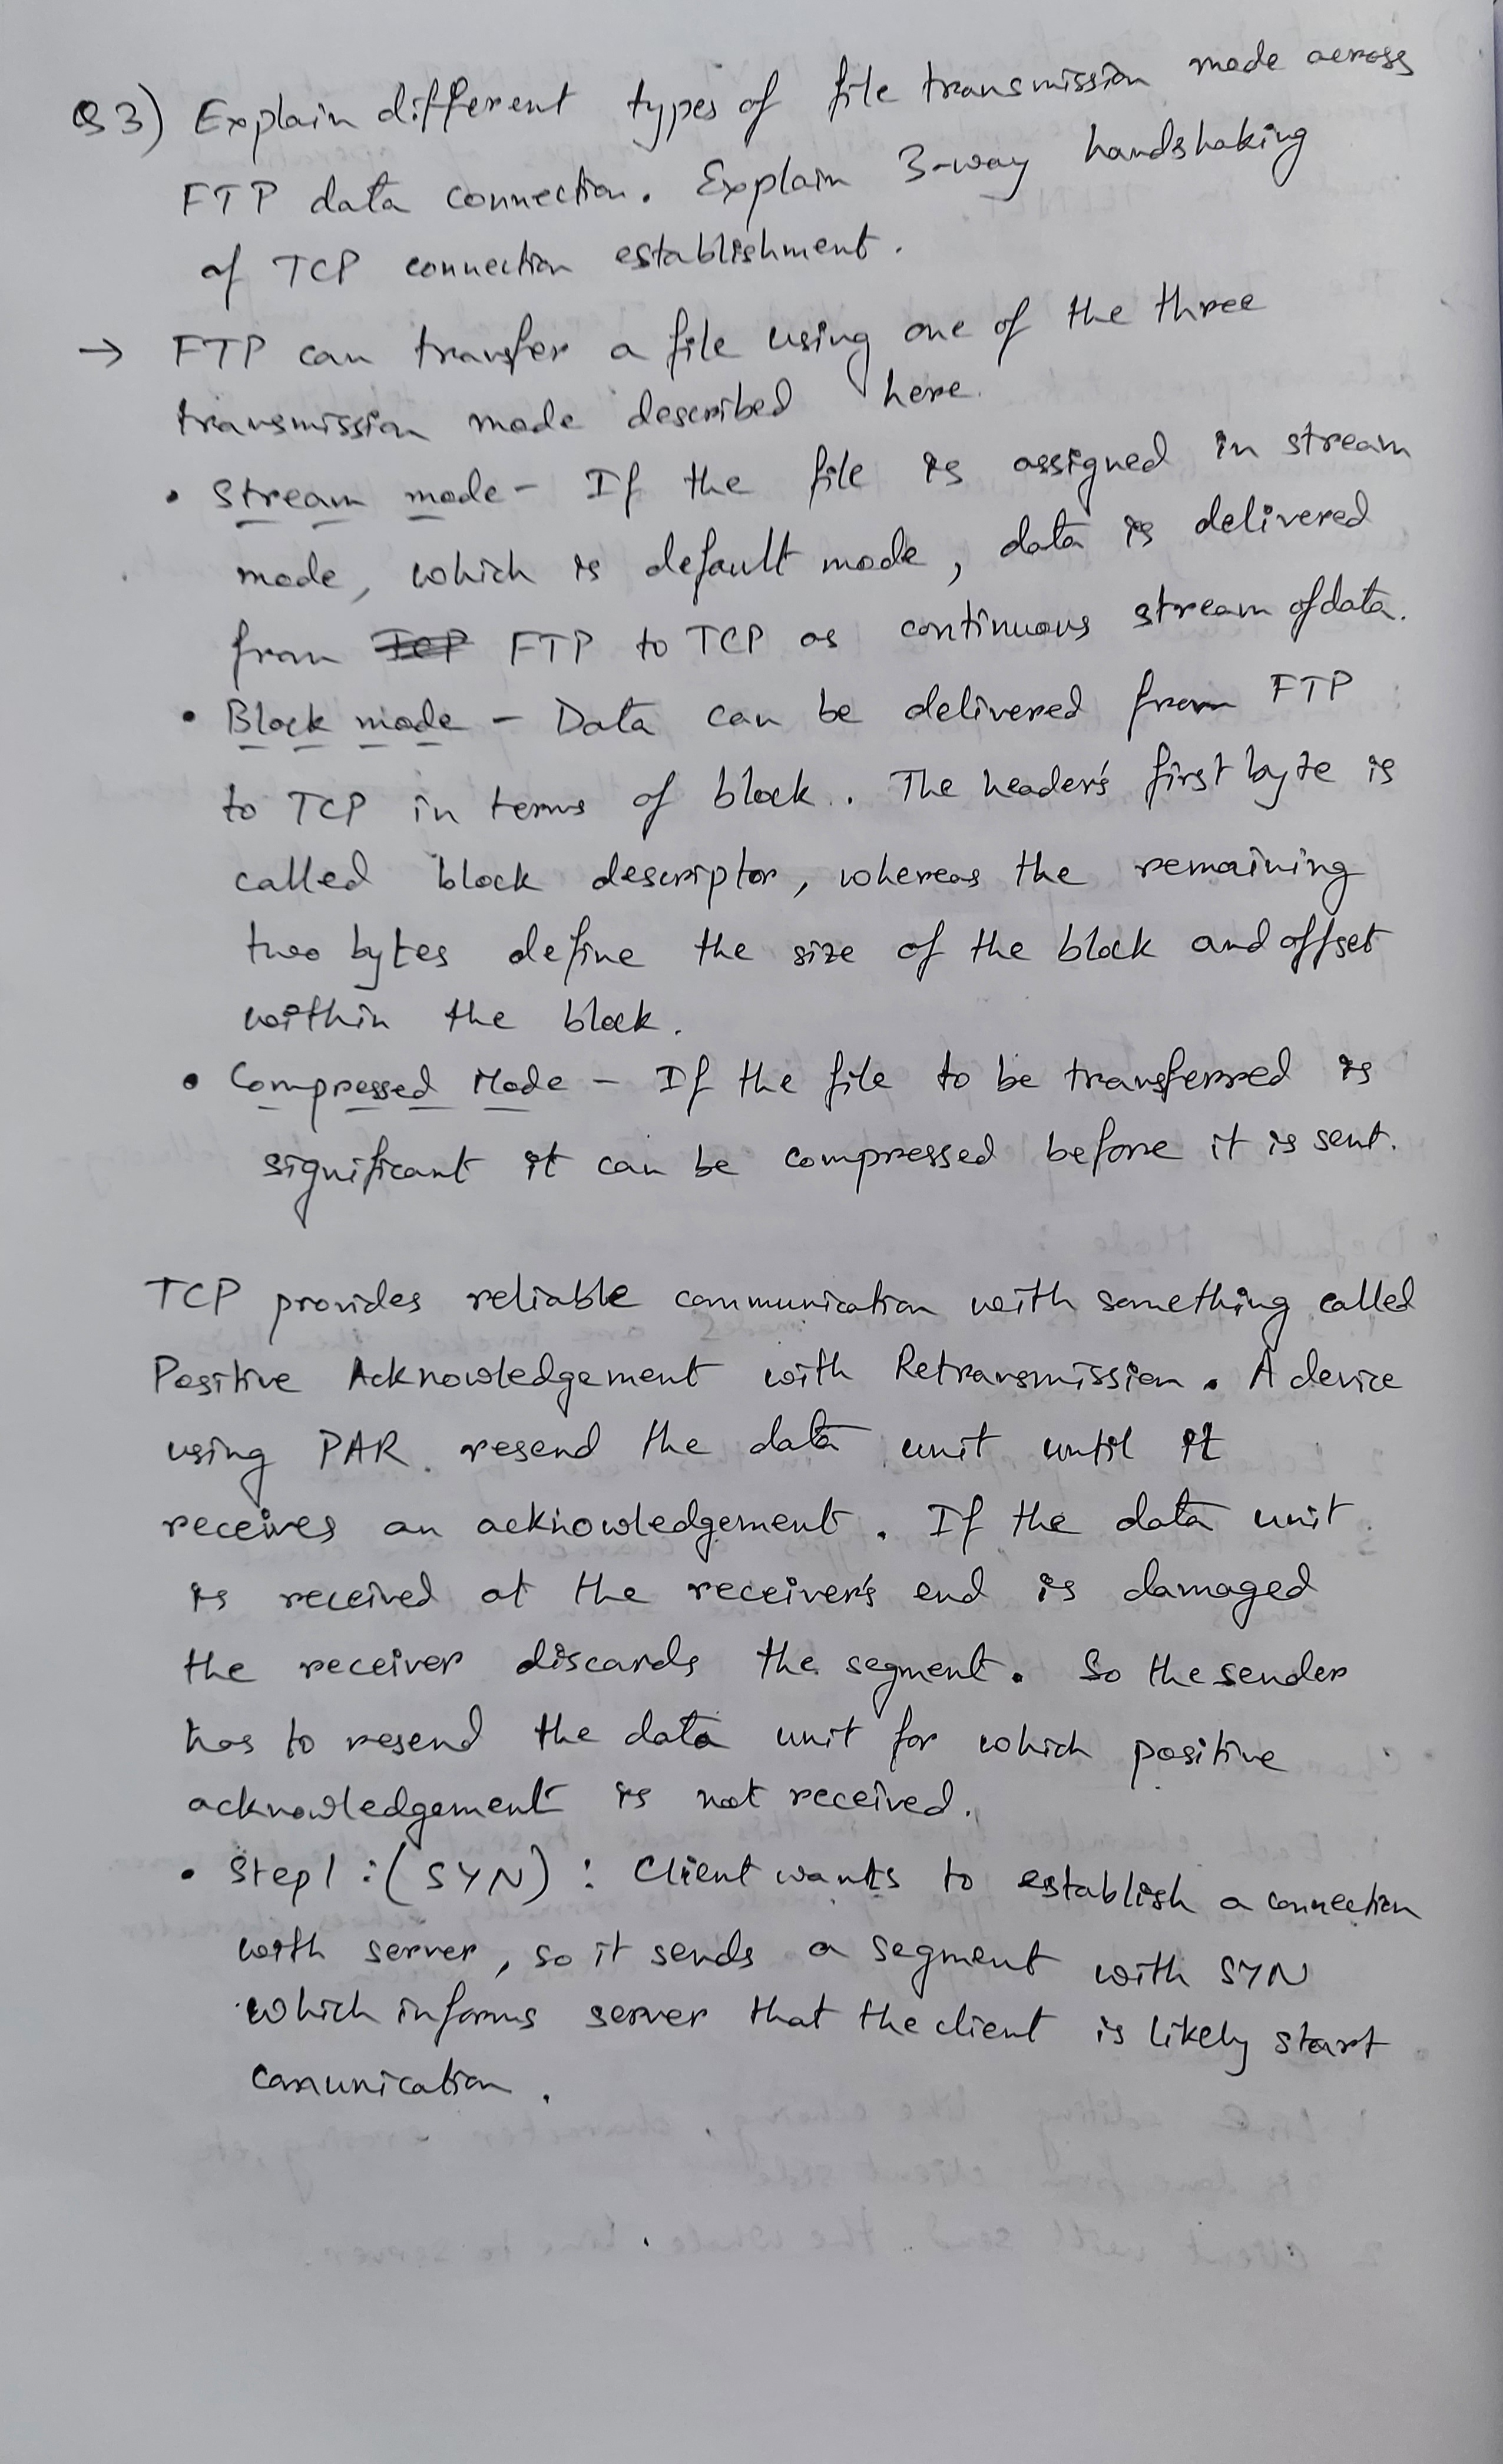 Q3) Explain different types of file transmission mode across
FTP data connection. Explain 3-way handshaking
of TCP connection establishment.
→ FTP can transfer a file using one of the three
transmission mode described here.
• Stream mode - If the file is assigned in stream
mode, which is default mode, data is delivered
from TCP FTP to TCP as continuous stream of data.
• Block mode - Data can be delivered from FTP
to TCP in terms of block. The header's first byte is
called block descriptor, whereas the remaining
two bytes define the size of the block and offset
within the block.
• Compressed Mode - If the file to be transferred is
significant it can be compressed before it is sent.
TCP provides reliable communication with something called
Positive Acknowledgement with Retransmission. A device
using PAR resend the data unit until it
receives an acknowledgement. If the data unit
is received at the receiver's end is damaged
the receiver discards the segment. So the sender
has to resend the data unit for which positive
acknowledgement is not received.
• Step 1 : (SYN) : Client wants to establish a connection
with server, so it sends a segment with SYN
which informs server that the client is likely start
comunication.